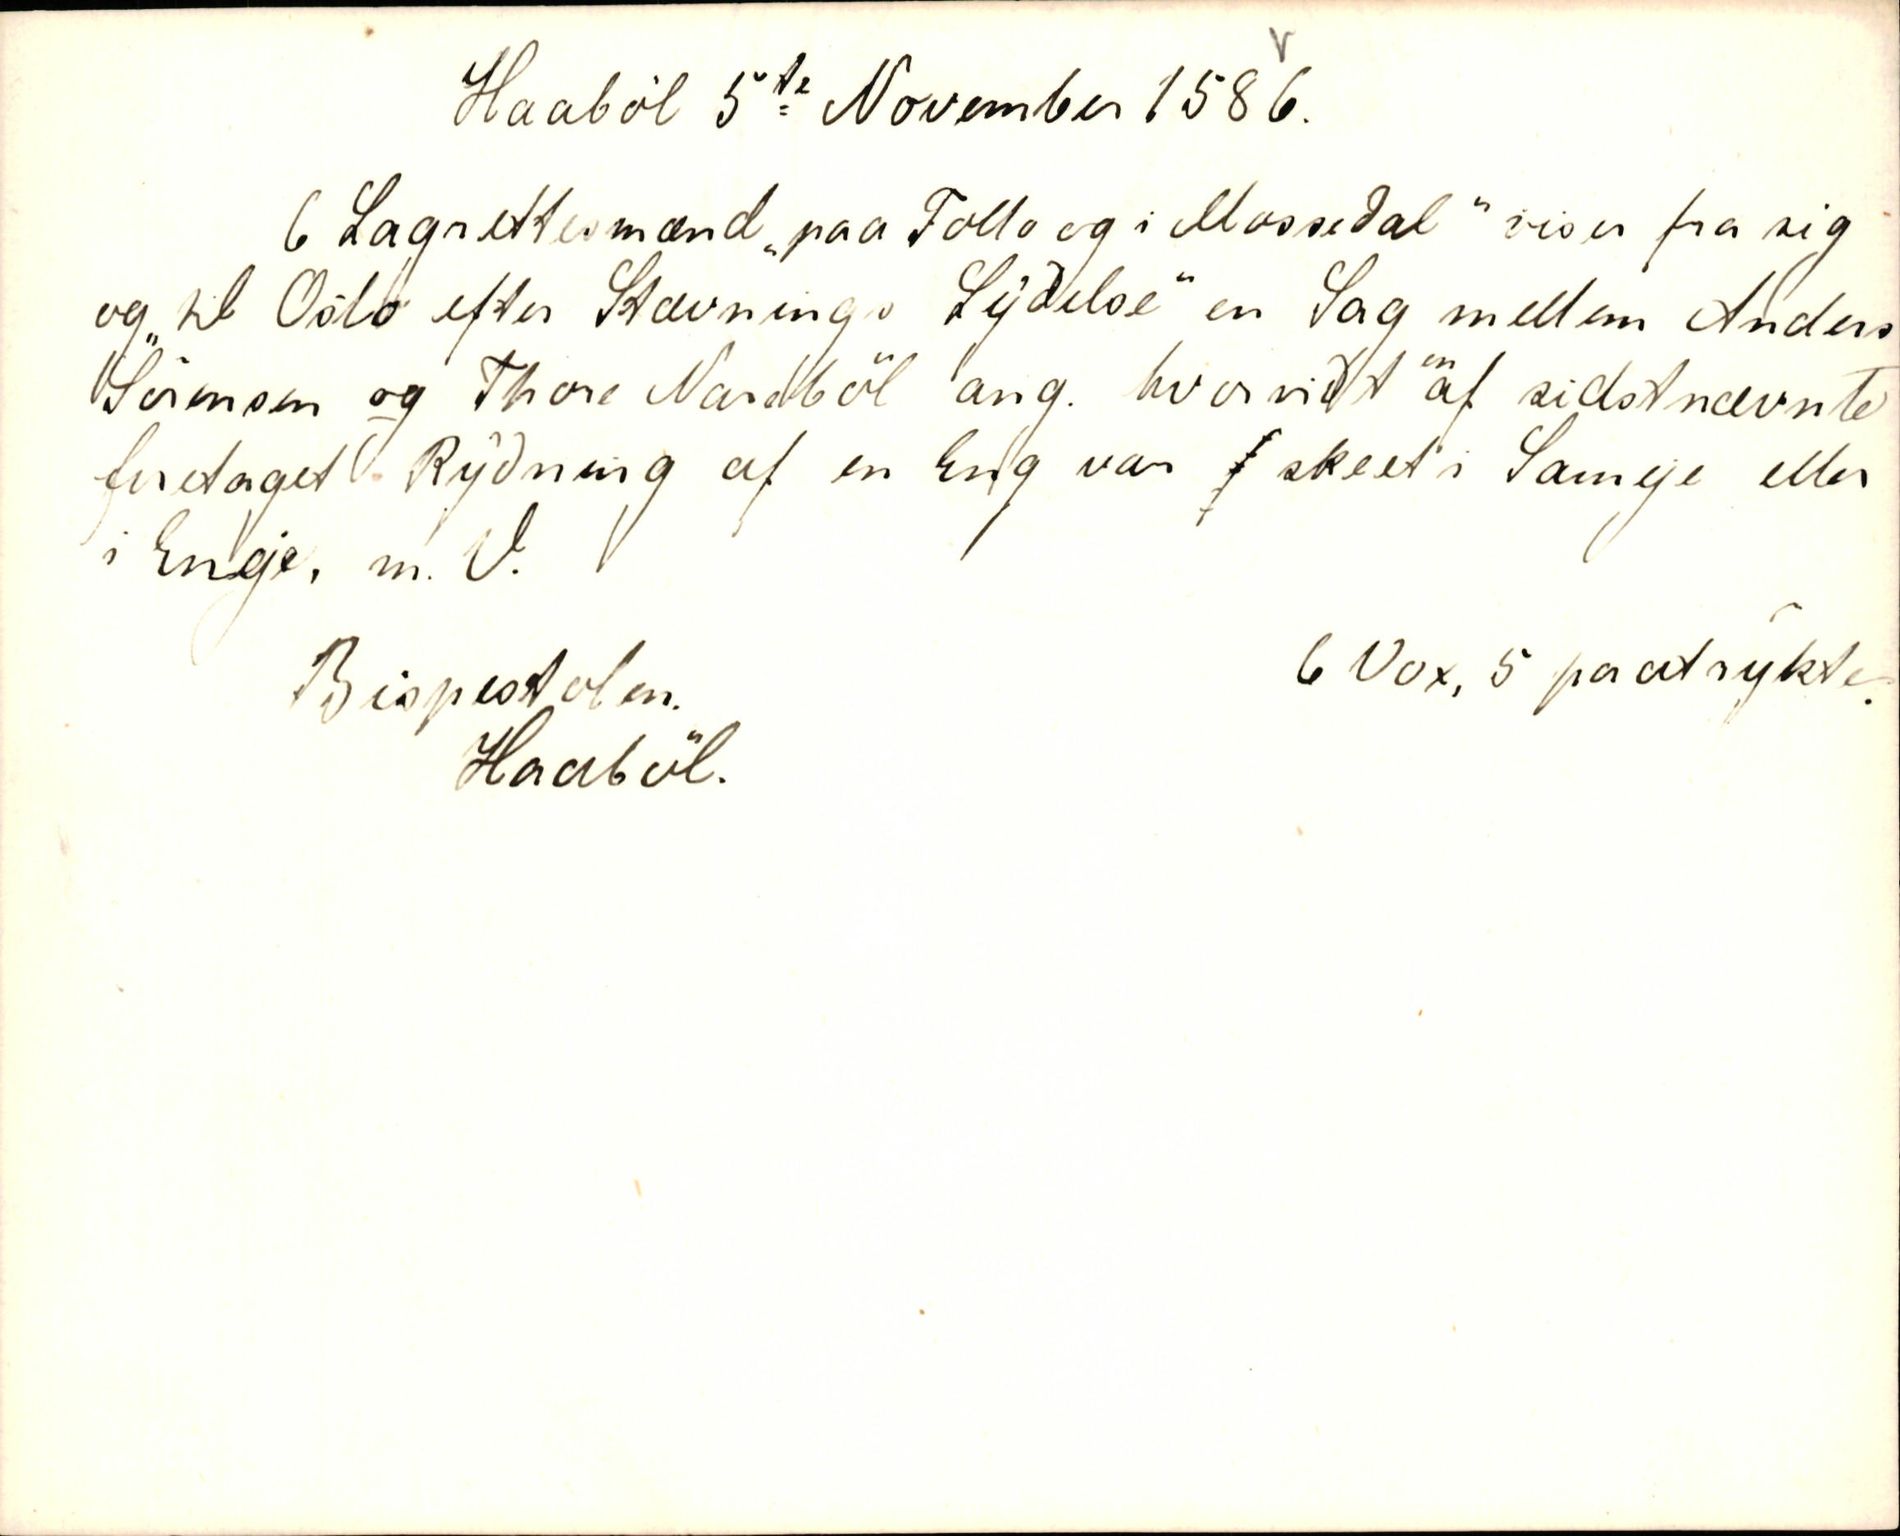 Haaböl 5te November 1586.
6 Lagrettesmænd „paa Follo og i Mossedal" viser fra sig
og „til Oslo efter Stævnings Lÿdelse" en Sag mellem Anders
Sörensen og Thore Nordböl ang. hvorvidt en af sidstnævnte
foretaget Rÿdning af en Eng var skeet i Sameje eller
i Enge. m. V.
6 Vox, 5 paatrÿkte.
Bispestolen.
Haaböl.